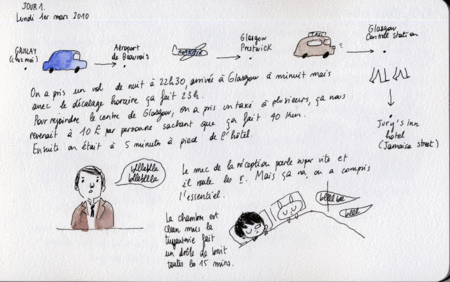 JOUR 1.
Lundi 1er mars 2010
Aéroport
de Beauvais
Glasgow
Prestwick
TAXI
Glasgow
Central Station
Jury's inn
hôtel
(Jamaica street)
On a pris un vol de nuit à 22h30, arrivée à Glasgow à minuit mais
avec le décalage horaire ça fait 23h.
Pour rejoindre le centre de Glasgow, on a pris un taxi à plusieurs, ça nous
revenait à 10 £ par personne sachant que ça fait 40 km.
Ensuite on était à 5 minutes à pied de l'hôtel.
Le mec de la réception parle super vite et
il roule les r. Mais ça va, on a compris
l'essentiel.
La chambre est
clean mais la
tuyauterie fait
un drôle de bruit
toutes les 15 mins.